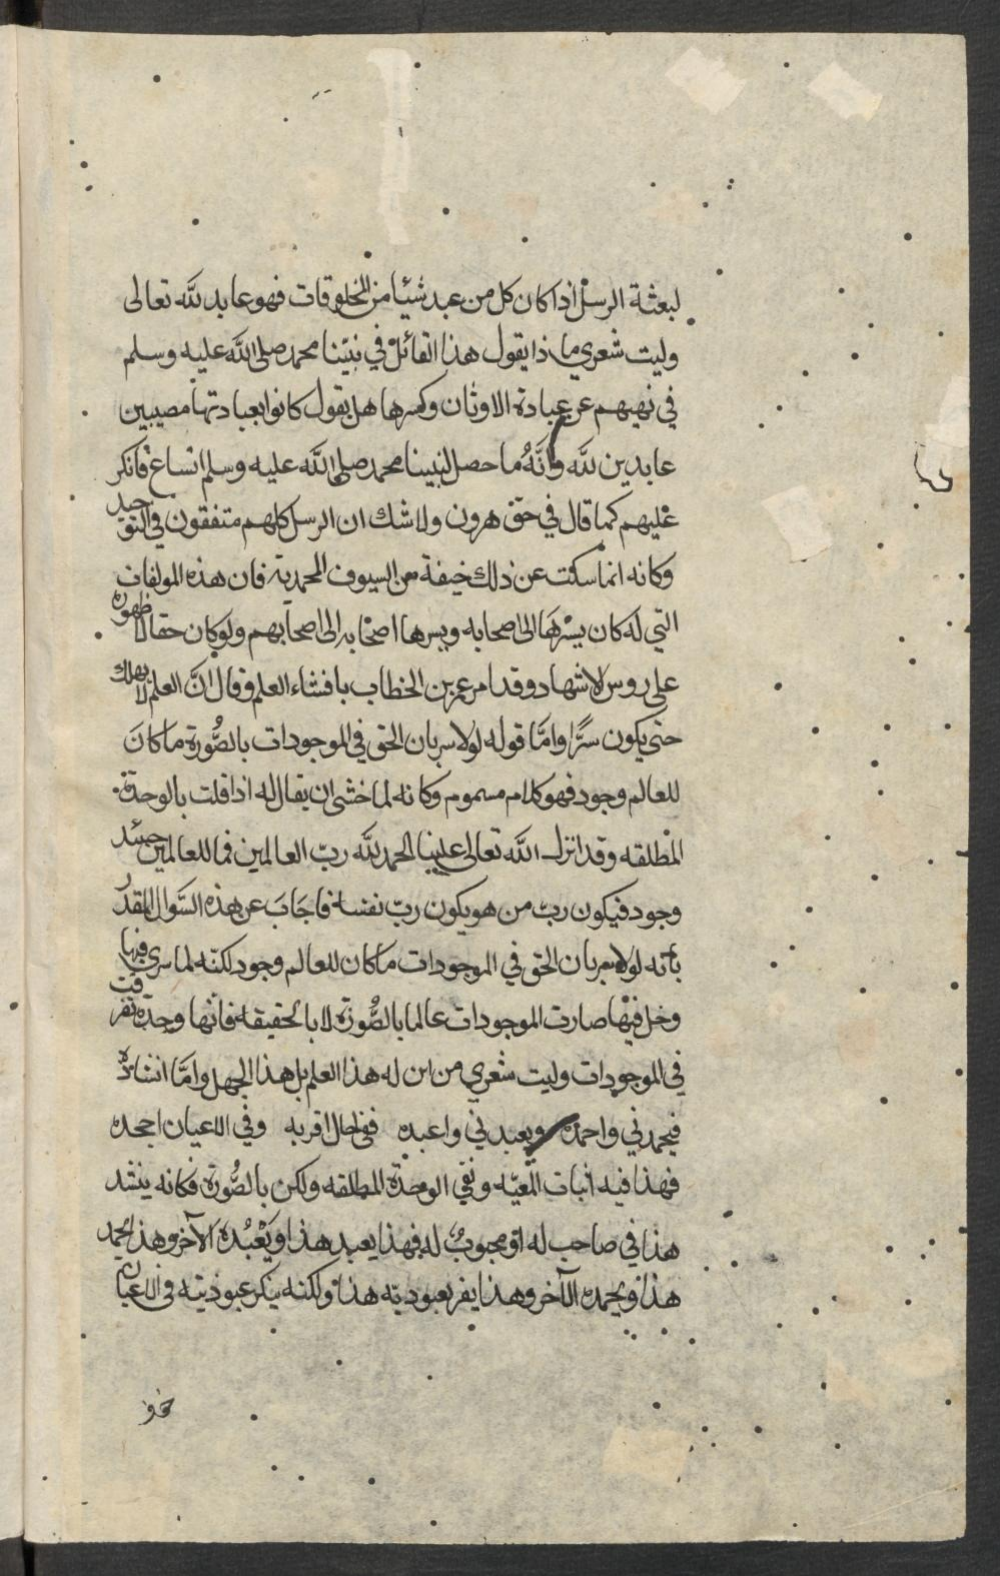 لبعثة الرسل اذا كان كل من عبد شيئا من المخلوقات فهو عابد لله تعالى
وليت شعري ماذا يقول هذا القائل في نبيّنا محمد صلى الله عليه وسلم
في نهيهم عن عبادة الاوثان وكسرها هل يقول كانوا بعبادتها مصيبين
عابدين لله وانَّهُ ما حصل لنبينا محمد صلى الله عليه وسلم اتساع فانكر
عليهم كما قال في حق هرون ولا شك ان الرسل كلهم متفقون في التوحيد
وكانه انما سكت عن ذلك خيفة من السيوف المحمدية فان هذه المولفات
التي له كان يسرها الى اصحابه ويسرها اصحابه الى اصحابهم ولو كان حقا لاظهوره
على روس لاشهاد وقد امر عمر بن الخطاب بافشاء العلم وقال انَّ العلم لا يهلك
حتى يكون سرًّا وامَّا قوله لولا سريان الحق في الموجودات بالصُّورة ما كانَ
للعالم وجود فهو كلام مسموم وكانه لما خشى ان يقال له اذا قلت بالوحدة
المطلقه وقد انزل الله تعالى علينا الحمد لله ربّ العالمين فما للعالمين حينئد
وجود فيكون ربّ من هو يكون ربّ نفسه فاجَابَ عن هذه السّوال المقدر
بأنه لولا سريان الحق في الموجودات ما كان للعالم وجود لكنّه لما سرى فيها
وخل فيها صارت الموجودات عالما بالصُّورة لا بالحقيقة فانها وحدة تفرقت
في الموجودات وليت شعري من اين له هذا العلم بل هذا الجهل وامَّا انشاده
فيحمدني واحمده ويعبدني واعبده ففي حال اقربه وفي الاعيان اجحده
فهذا فيه اثبات المعيّه ونفي الوحدة المطلقه ولكن بالصُّورة فكانه ينشد
هذا في صاحب له او محبوبٌ له فهذا يعبد هذا ويَعْبُدهُ الآخر وهذا يحمد
هذا ويحمده الآخر وهذا يقر بعبوديته هذا ولكنه ينكر عبوديته في الاعيان